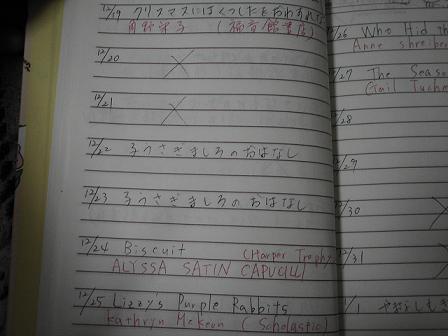 12/19 クリスマスにはくつしたをおわすれなく
角野栄子 (福音館書店)
12/20
12/21
12/22 子うさぎましろのおはなし
12/23 子うさぎましろのおはなし
12/24 Biscuit (Harper Trophy
ALYSSA SATIN CAPUCILLI
12/25 Lizzy's Purple Rabbits
Kathryn McKeon (Scholastic)
12/26 Who Hid Th
Anne Shreibe
12/27 The Seaso
Gail Tuche
12/28
12/29
12/30
12/31
1/1